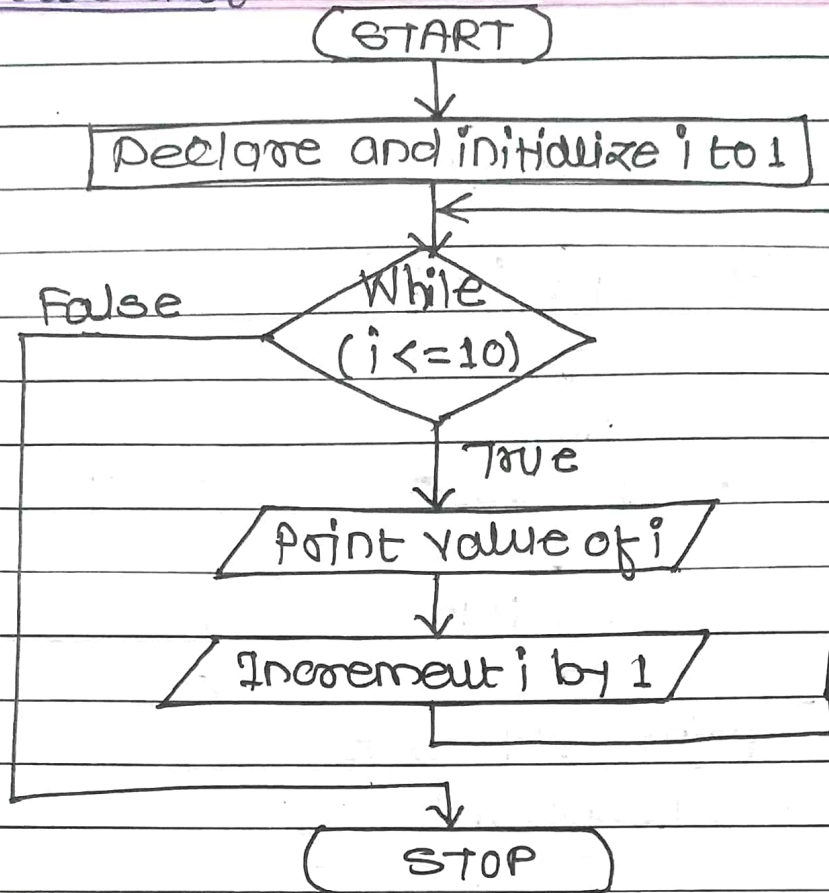 START
Declare and initialize i to 1
While
False
(i<=10)
True
Print value of i
Increment i by 1
STOP